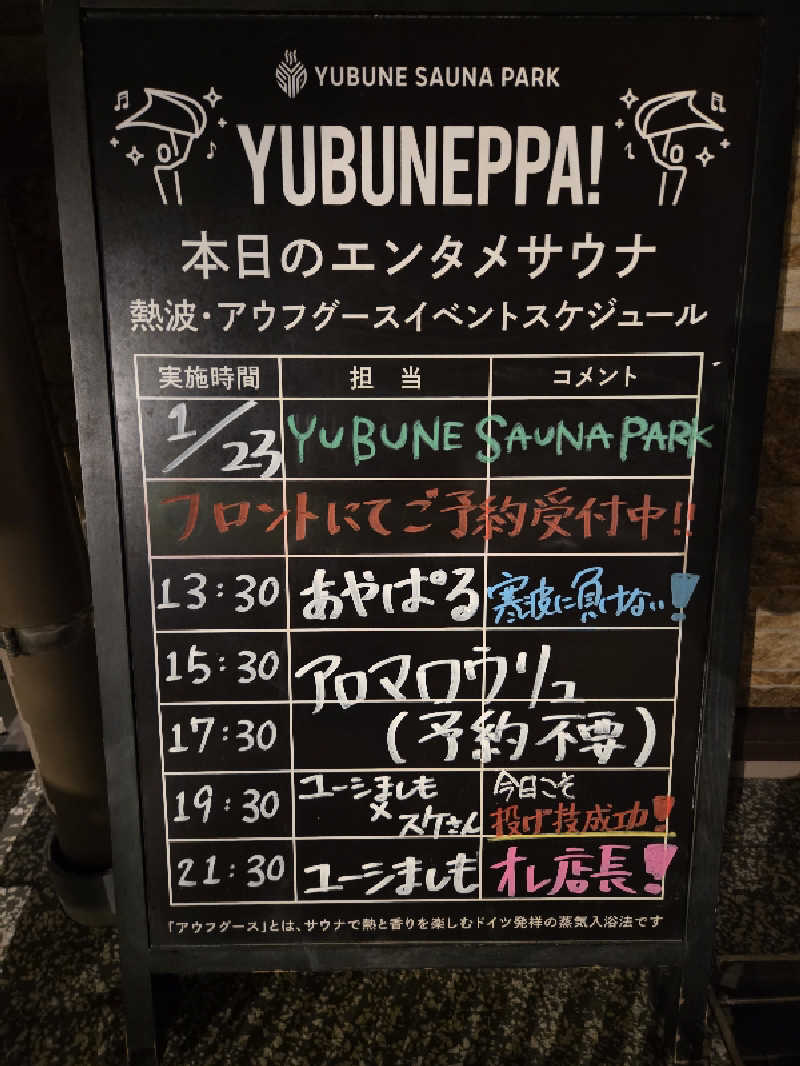 YUBUNE SAUNA PARK
YUBUNEPPA!
本日のエンタメサウナ
熱波・アウフグースイベントスケジュール
実施時間 担当 コメント
1/23 YUBUNE SAUNA PARK
フロントにてご予約受付中!!
13:30 あやぱる 寒波に負けない!
15:30 アロマロウリュ
17:30 (予約不要)
19:30 ユーシましも×スケさん 今日こそ投げ技成功!
21:30 ユーシましも オレ店長!
「アウフグース」とは、サウナで熱と香りを楽しむドイツ発祥の蒸気入浴法です